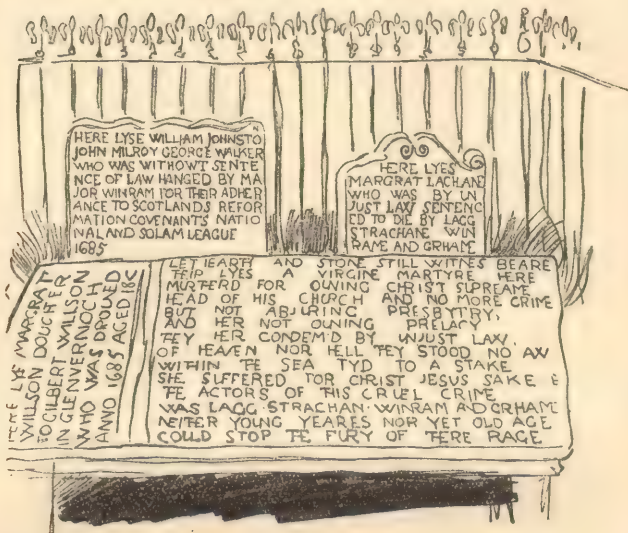 HERE LYSE WILLIAM JOHNSTO
N
JOHN MILROY GEORGE WALKER
WHO WAS WITHOWT SENTE
NCE OF LAW HANGED BY MA
JOR WINRAM FOR THEIR ADHER
ANCE TO SCOTLANDS REFOR
MATION COVENANTS NATIO
NAL AND SOLAM LEAGUE
1685
HERE LYES
MARGRAT LACHLANE
WHO WAS BY UN
JUST LAW SENTENC
ED TO DIE BY LAGG
STRACHANE WIN
RAME AND GRHAME
HERE LYS MARGRAT
WILLSON DOUGHTER
TO GILBERT WILLSON
IN GLENVERNOCH
WHO WAS DROUNED
ANNO 1685 AGED 18
LET EARTH AND STONE STILL WITNES BEARE
THEIR LYES A VIRGINE MARTYRE HERE
MURTHERD FOR OUNING CHRIST SUPREAME
HEAD OF HIS CHURCH AND NO MORE CRIME
BUT NOT ABJURING PRESBYTRY,
AND HER NOT OUNING PRELACY
THEY HER CONDEM'D BY UNJUST LAW,
OF HEAVEN NOR HELL THEY STOOD NO AW
WITHIN THE SEA TYD TO A STAKE
SHE SUFFERED FOR CHRIST JESUS SAKE
THE ACTORS OF THIS CRUEL CRIME
WAS LAGG · STRACHAN · WINRAM AND GRHAME
NEITHER YOUNG YEARES NOR YET OLD AGE
COULD STOP THE FURY OF THERE RAGE